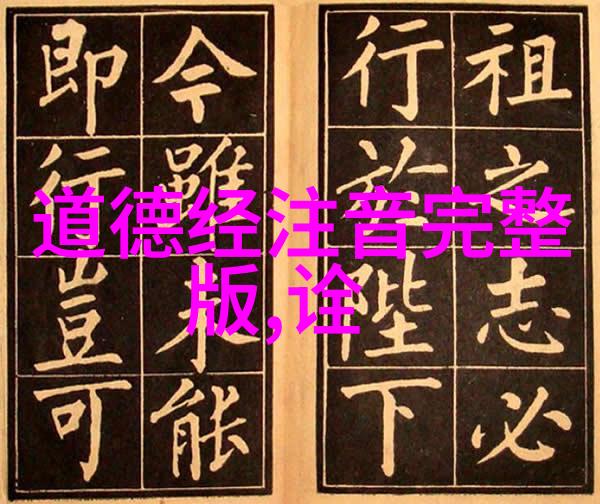 道德经注音完整
版,诠
祖之志必
行於陛下
今雖未能
即行豈可